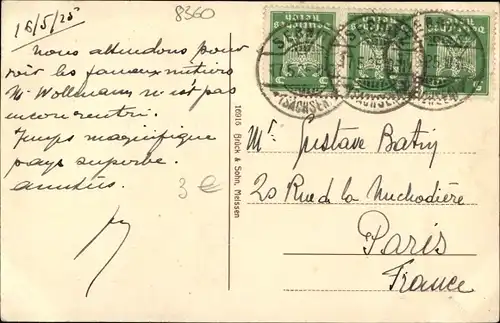 16/5/25
8360
Nous attendons pour
voir les fameux métiers
Mr Wollmann n'est pas
encore rentré.
Temps magnifique
pays superbe.
amitiés.
3 €
16915 Brück & Sohn, Meissen
Deutsches Reich
Deutsches Reich
Deutsches Reich
SEBNITZ
(SACHSEN)
Mr Gustave Batin
20 Rue de la Michodière
Paris
France